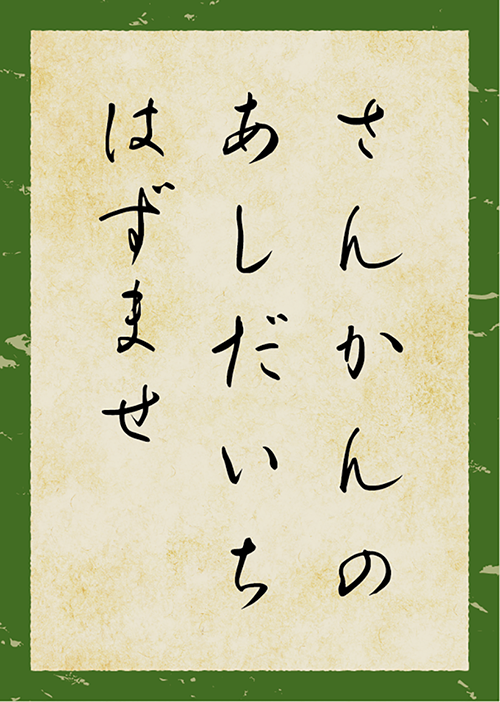 さんかんの
あしだいち
はずませ